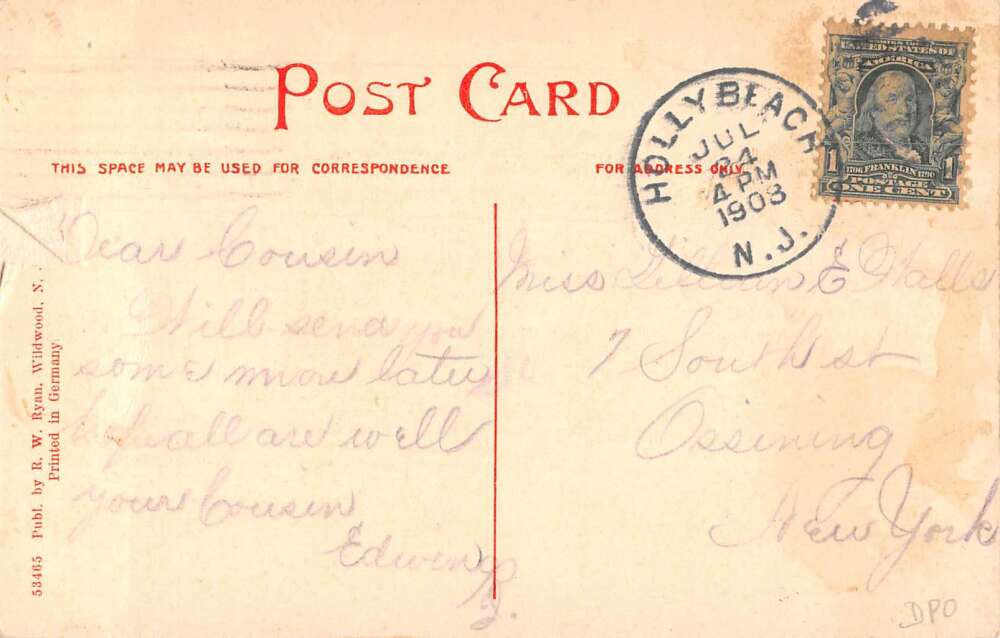 POST CARD
THIS SPACE MAY BE USED FOR CORRESPONDENCE
FOR ADDRESS ONLY
HOLLY BEACH
JUL
24
4 PM
1908
N.J.
UNITED STATES OF
AMERICA
1706 FRANKLIN 1790
1 1
POSTAGE
ONE CENT
Dear Cousin
Will send you
some more later
all are well
your Cousin
Edwin
Miss Lillian E Walls
7 South st
Ossining
New York
53465 Publ. by R. W. Ryan, Wildwood, N.
Printed in Germany
DPO